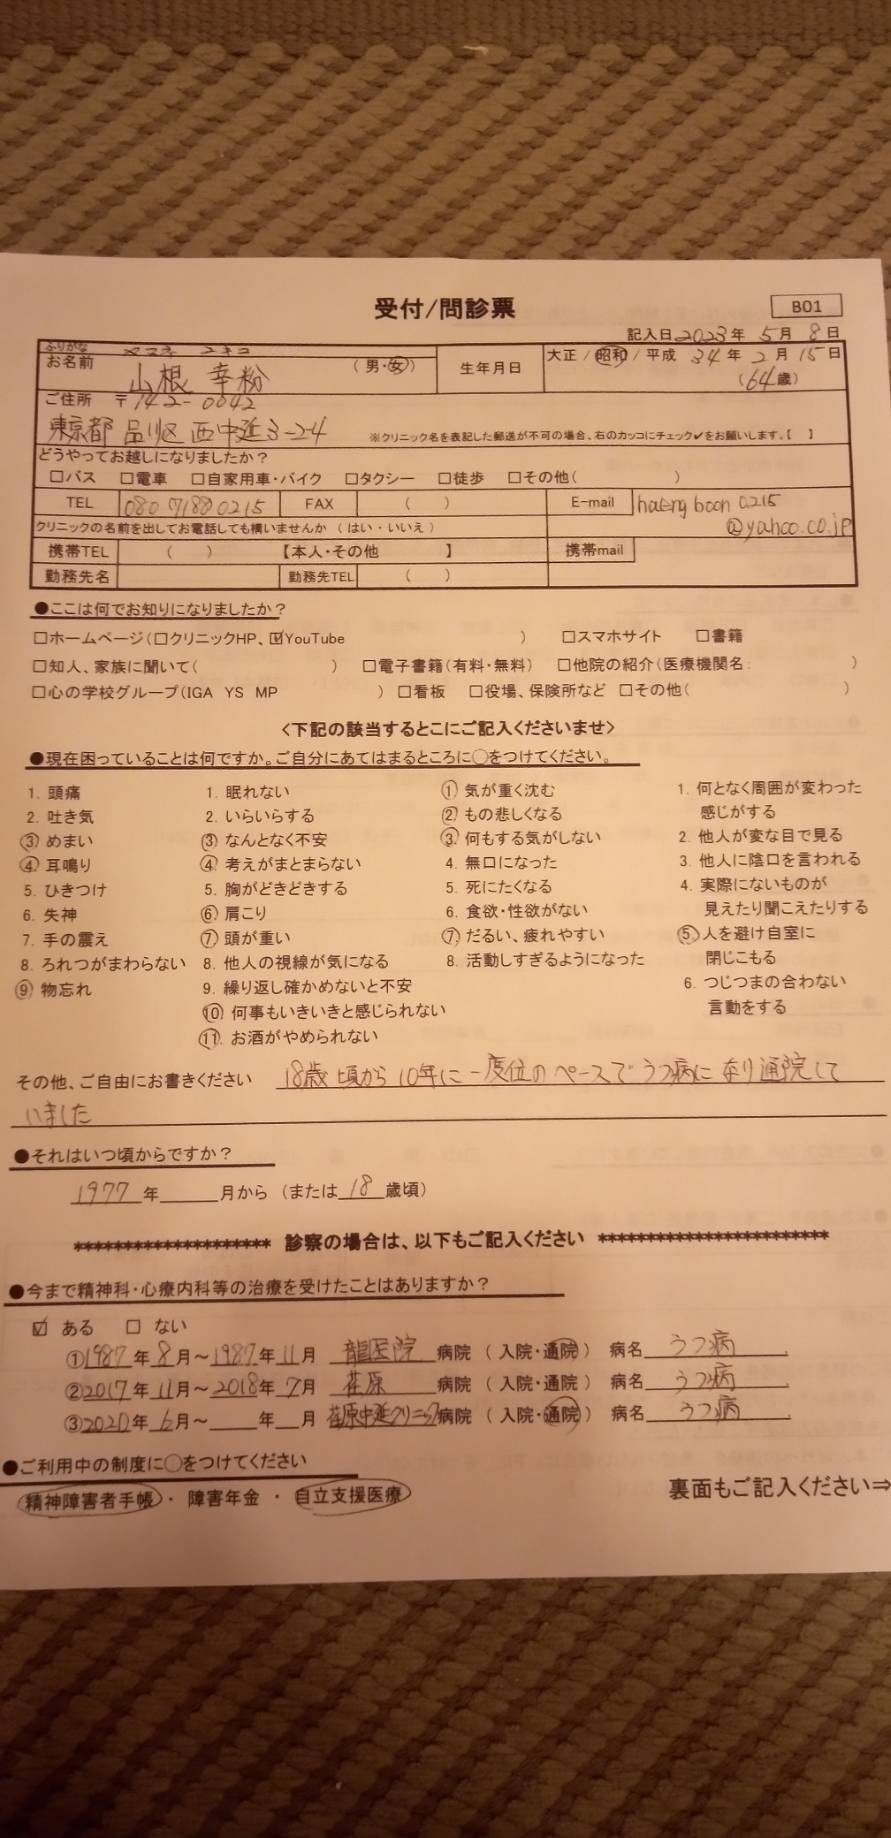 受付/問診票
B01
記入日 2023年 5月 8日
ふりがな
お名前 山根 幸粉 (男・女)
生年月日 大正 / 昭和 / 平成 34年 2月 15日
(64歳)
ご住所 〒142-0042
東京都 品川区 西中延3-2-4
※クリニック名を表記した郵送が不可の場合、右のカッコにチェック✔をお願いします。【 】
どうやってお越しになりましたか?
□バス □電車 □自家用車・バイク □タクシー □徒歩 □その他( )
TEL 080 7188 0215 FAX ( ) E-mail haengboon0215
@yahoo.co.jp
クリニックの名前を出してお電話しても構いませんか (はい・いいえ)
携帯TEL ( ) 【本人・その他 】 携帯mail
勤務先名 勤務先TEL ( )
●ここは何でお知りになりましたか?
□ホームページ(□クリニックHP、☑YouTube ) □スマホサイト □書籍
□知人、家族に聞いて( ) □電子書籍(有料・無料) □他院の紹介(医療機関名: )
□心の学校グループ(IGA YS MP ) □看板 □役場、保険所など □その他( )
<下記の該当するとこにご記入くださいませ>
●現在困っていることは何ですか。ご自分にあてはまるところに○をつけてください。
1. 頭痛 1. 眠れない ① 気が重く沈む 1. 何となく周囲が変わった
2. 吐き気 2. いらいらする ② もの悲しくなる 感じがする
③ めまい ③ なんとなく不安 ③. 何もする気がしない 2. 他人が変な目で見る
④ 耳鳴り ④ 考えがまとまらない 4. 無口になった 3. 他人に陰口を言われる
5. ひきつけ 5. 胸がどきどきする 5. 死にたくなる 4. 実際にないものが
6. 失神 ⑥ 肩こり 6. 食欲・性欲がない 見えたり聞こえたりする
7. 手の震え ⑦ 頭が重い ⑦ だるい、疲れやすい ⑤ 人を避け自室に
8. ろれつがまわらない 8. 他人の視線が気になる 8. 活動しすぎるようになった 閉じこもる
⑨ 物忘れ 9. 繰り返し確かめないと不安 6. つじつまの合わない
⑩ 何事もいきいきと感じられない 言動をする
⑪. お酒がやめられない
その他、ご自由にお書きください 18歳頃から10年に一度位のペースでうつ病になり通院して
いました
●それはいつ頃からですか?
1977年 月から (または 18歳頃)
******************** 診察の場合は、以下もご記入ください ************************
●今まで精神科・心療内科等の治療を受けたことはありますか?
☑ ある □ ない
①1987年 8月~1987年 11月 龍医院 病院 (入院・通院) 病名 うつ病
②2017年 11月~2018年 7月 荏原 病院 (入院・通院) 病名 うつ病
③2020年 6月~ 年 月 荏原中延クリニック病院 (入院・通院) 病名 うつ病
●ご利用中の制度に○をつけてください
精神障害者手帳 ・ 障害年金 ・ 自立支援医療
裏面もご記入ください⇒